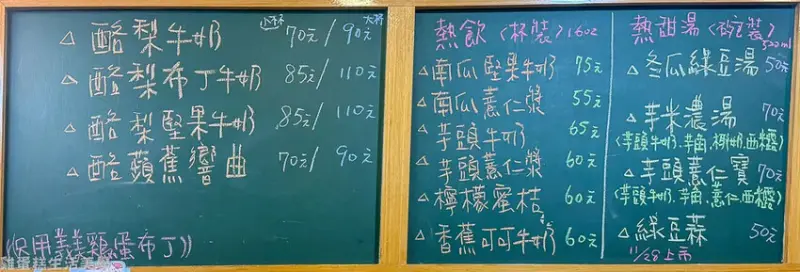 小杯 大杯
△ 酪梨牛奶 70元/90元
△ 酪梨布丁牛奶 85元/110元
△ 酪梨堅果牛奶 85元/110元
△ 酪蘋蕉響曲 70元/90元
熱飲(杯裝)16oz
△南瓜堅果牛奶 75元
△南瓜薏仁漿 55元
△芋頭牛奶 65元
△芋頭薏仁漿 60元
△檸檬蜜桔 60元
△香蕉可可牛奶 60元
熱甜湯(碗裝)
500ml
△冬瓜綠豆湯 50元
△芋米濃湯 70元
(芋頭牛奶、芋角、西米露)
△芋頭薏仁寶 70元
(芋頭牛奶、芋角、薏仁、西米露)
△綠豆蒜 50元
11/28上市